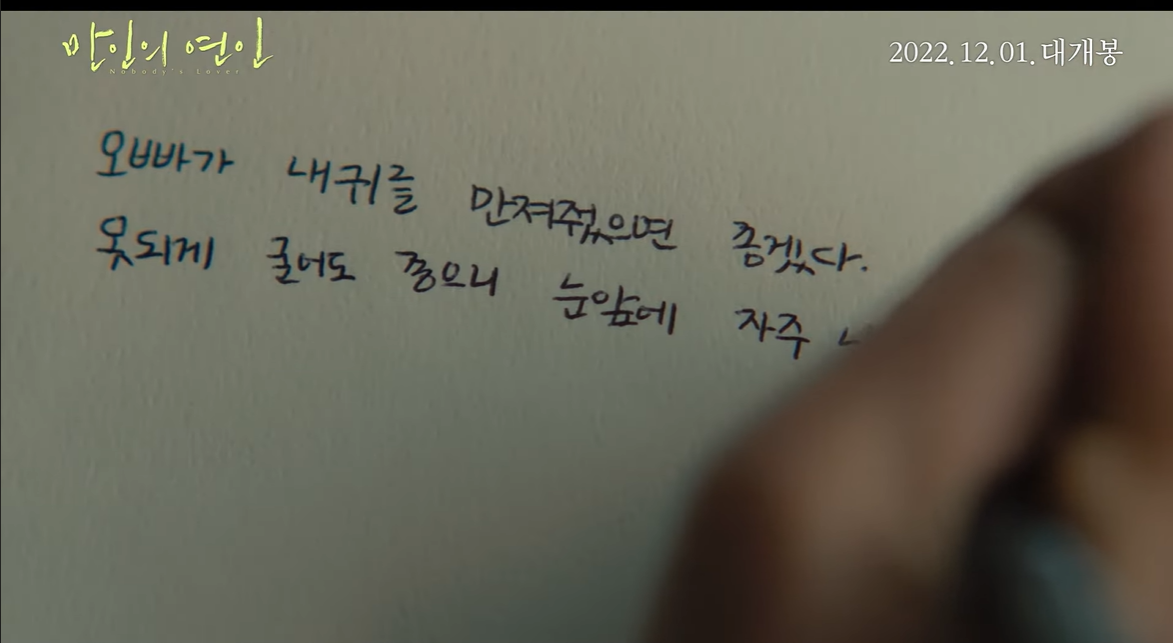 만인의 연인
Nobody's Lover
2022.12.01. 대개봉
오빠가 내귀를 만져줬으면 좋겠다.
못되게 굴어도 좋으니 눈앞에 자주